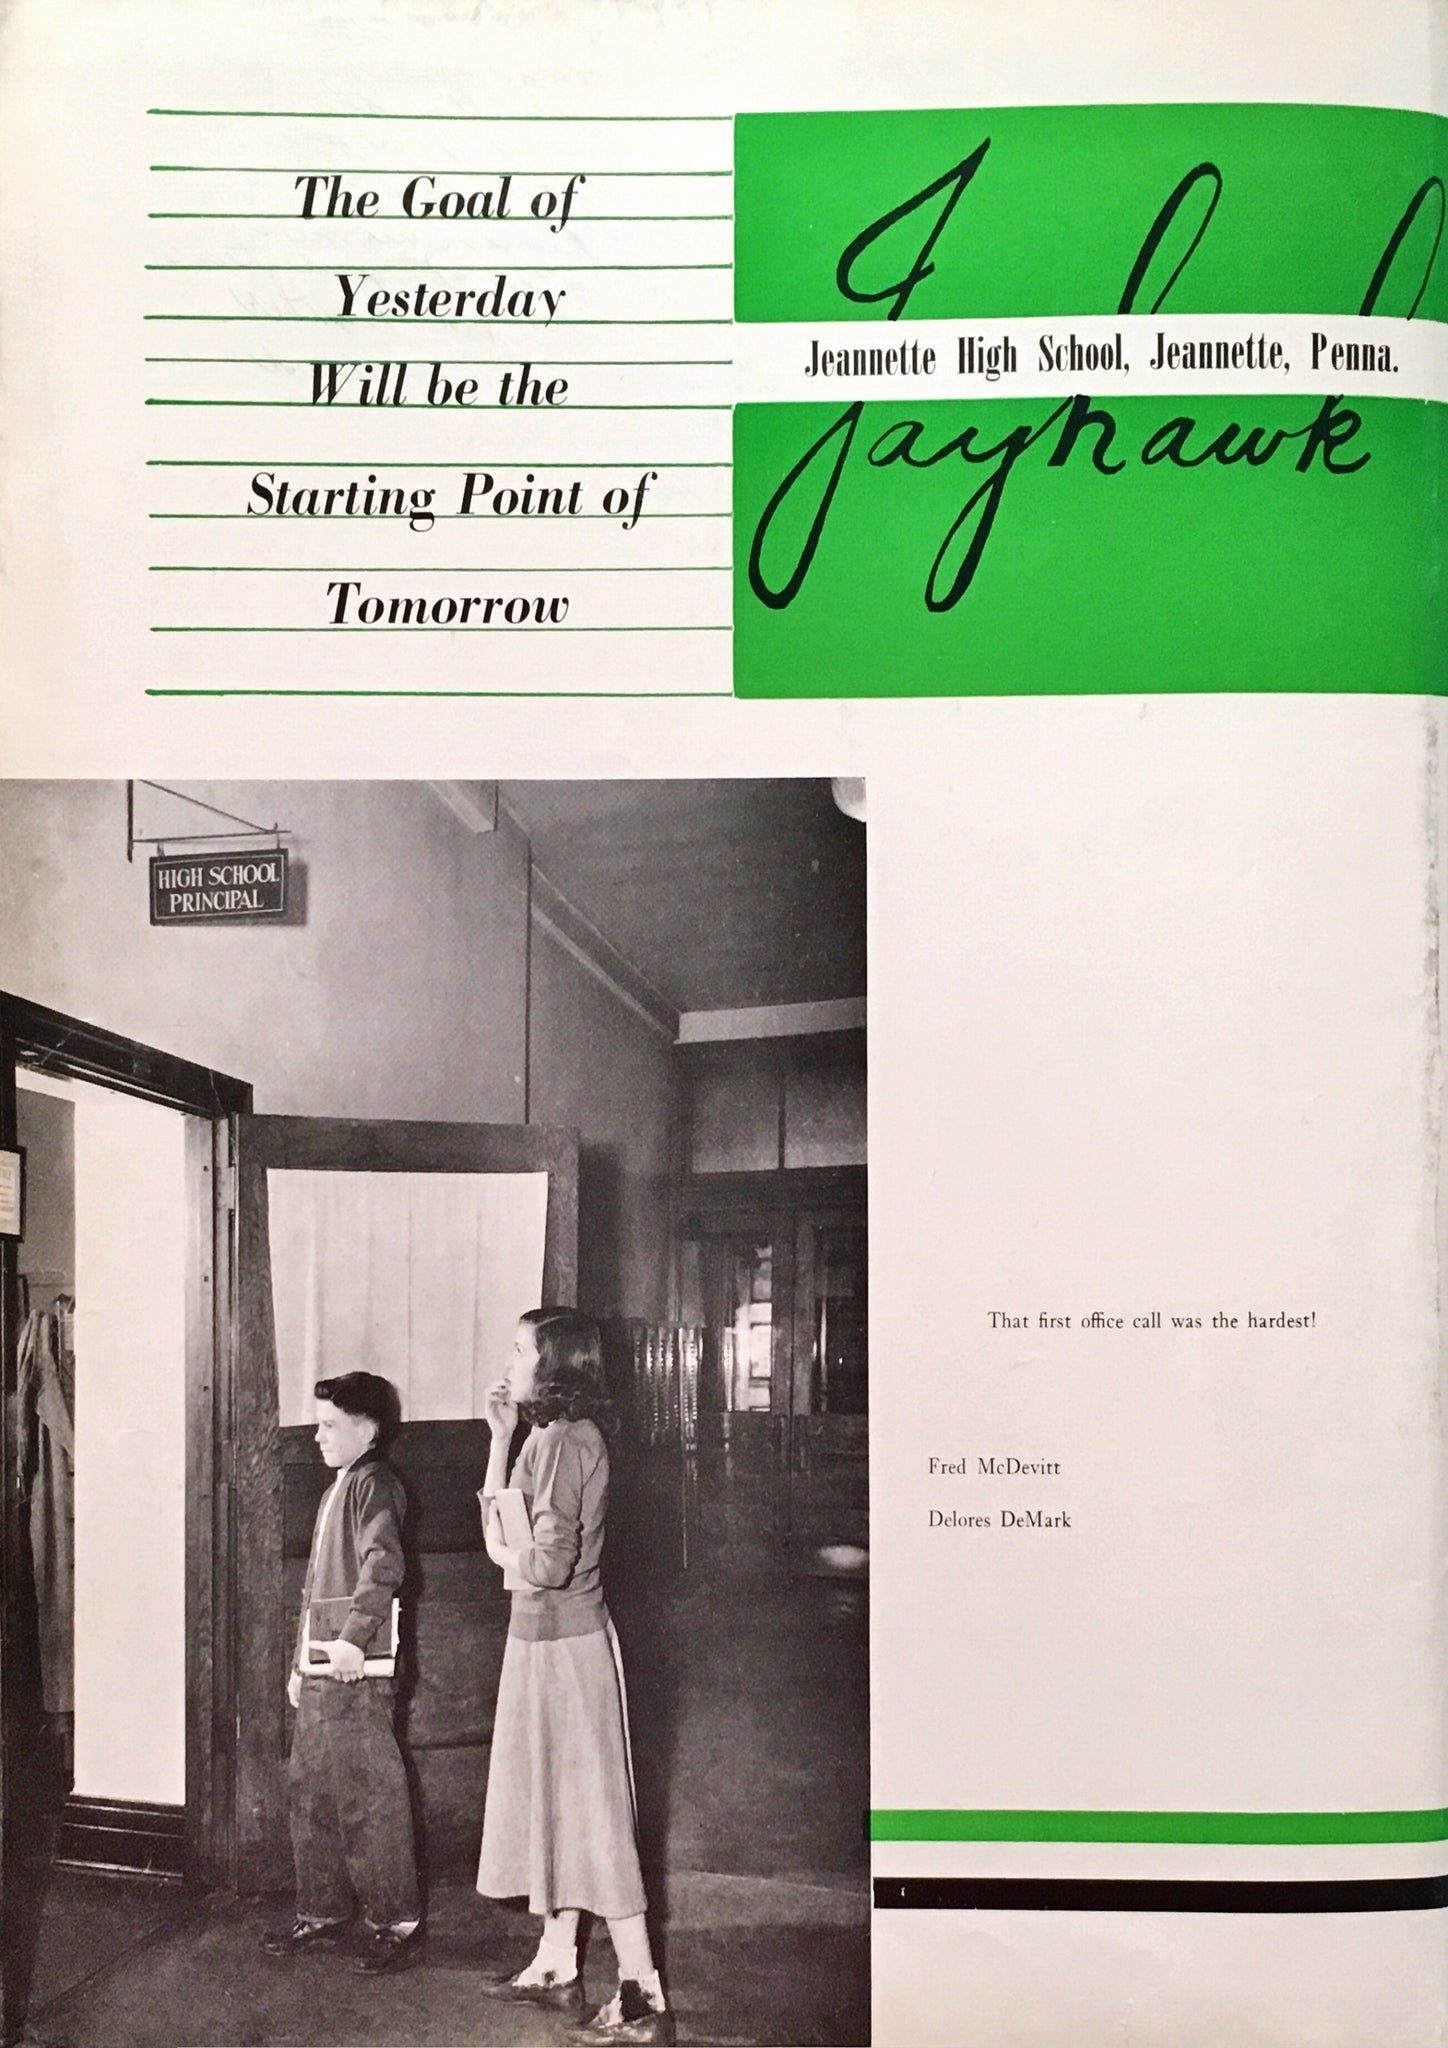 The Goal of
Yesterday
Will be the
Starting Point of
Tomorrow
Jeannette High School, Jeannette, Penna.
Jayhawk
HIGH SCHOOL
PRINCIPAL
That first office call was the hardest!
Fred McDevitt
Delores DeMark